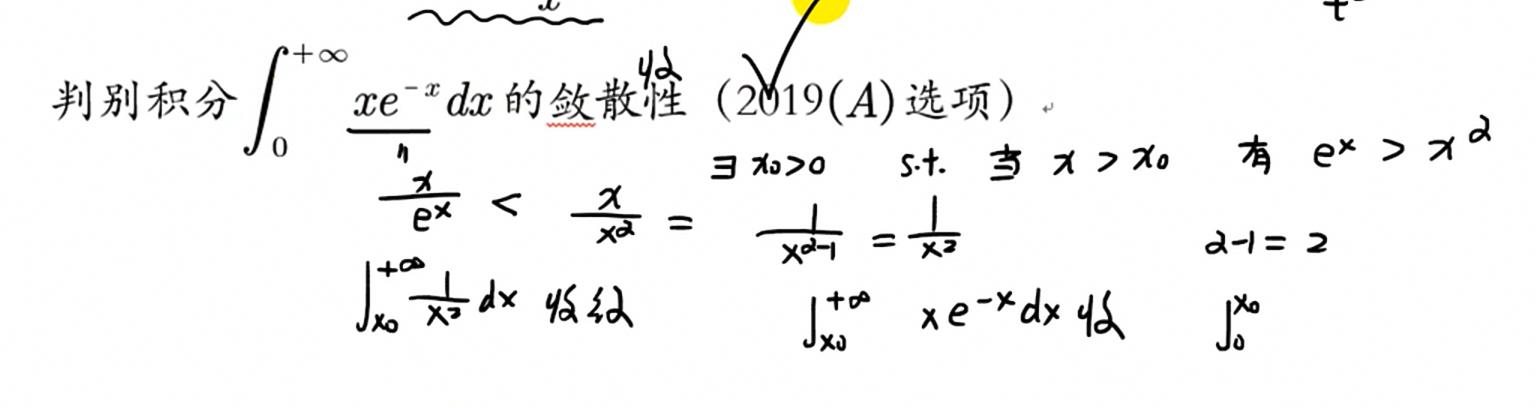 判别积分 ∫₀^{+∞} xe^{-x} dx 的敛散性 (2019(A) 选项)
收
∃ x₀>0 s.t. 当 x > x₀ 有 eˣ > x^α
x/eˣ < x/x^α = 1/x^{α-1} = 1/x² α-1=2
∫_{x₀}^{+∞} 1/x² dx 收敛 ∫_{x₀}^{+∞} xe^{-x}dx 收 ∫₀^{x₀}